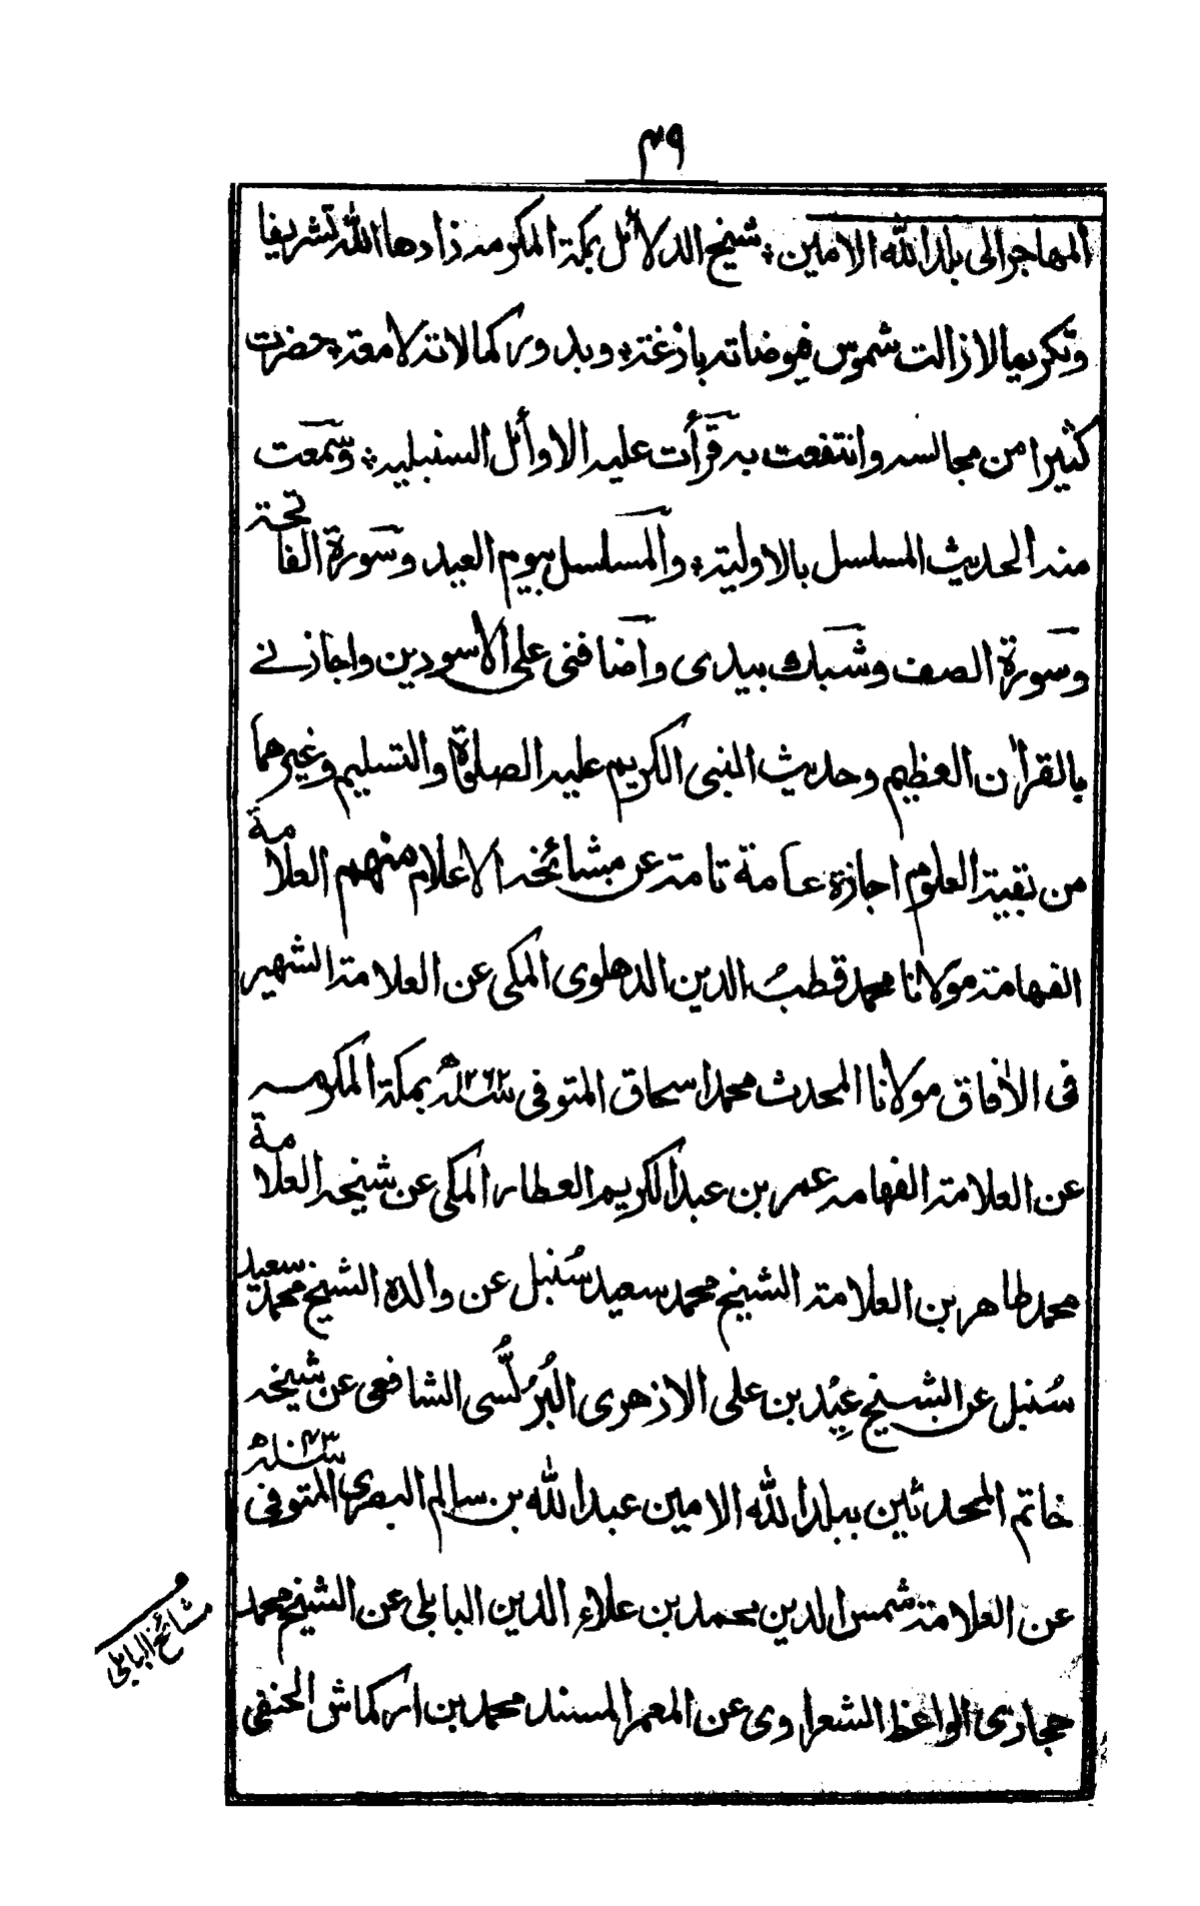 ٤٩
المهاجر الى بلد الله الامين ؛ شيخ الدلائل بمكة المكرمه زادها الله تشريفا
وتكريما لازالت شموس فيوضاته بازغة ؛ وبدور كمالاته لامعة ؛ حضرت
كثيرا من مجالسه وانتفعت به قرأت عليه الاوائل السنبليه ؛ وسمعت
منه الحديث المسلسل بالاولية ؛ والمسلسل بيوم العيد وسورة الفاتحة
وسورة الصف وشبك بيدى واضافنى على الاسودين واجازنے
بالقرأن العظيم وحديث النبى الكريم عليه الصلوة والتسليم وغيرهما
من بقية العلوم اجازة عامة تامة عن مشائخه الاعلام منهم العلامة
الفهامة مولانا محمد قطبُ الدين الدهلوى المكى عن العلامة الشهير
فى الأفاق مولانا المحدث محمد اسحاق المتوفى سنة ١٢٦٢ھ بمكة المكرمه
عن العلامة الفهامه عمر بن عبد الكريم العطار المكى عن شيخه العلامة
محمد طاهر بن العلامة الشيخ محمد سعيد سُنبل عن والده الشيخ محمد سعيد
سُنبل عن الشيخ عِيُد بن على الازهرى البُرُلُّسى الشافعى عن شيخه
خاتم المحدثين ببلد الله الامين عبد الله بن سالم البصرى المتوفى سنة
عن العلامة شمس الدين محمد بن علاء الدين البابلى عن الشيخ محمد
حجازى الواعظ الشعراوى عن المعمر المسند محمد بن اركماش الحنفى
مشائخ البابلى